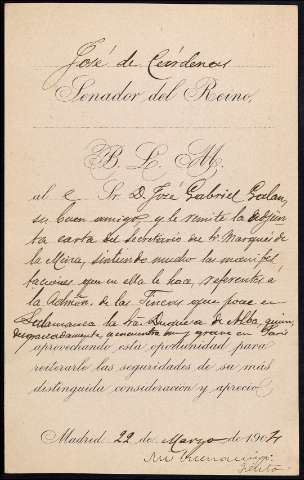 José de Cárdenas
Senador del Reino,
B. L. M.
al Sr. D. José Gabriel Galan,
su buen amigo y le remite la adjun-
ta carta del Secretario del Sr. Marqués de
la Mina, sintiendo mucho las manifes-
taciones que en ella le hace, referentes á
la Admón. de las fincas que posee en
Salamanca la Sra. Duquesa de Alba, quien,
desgraciadamente, se encuentra muy grave en París
aprovechando esta oportunidad para
reiterarle las seguridades de su más
distinguida consideración y aprecio.
Madrid 22 de Marzo de 1904
Mi buen amigo: